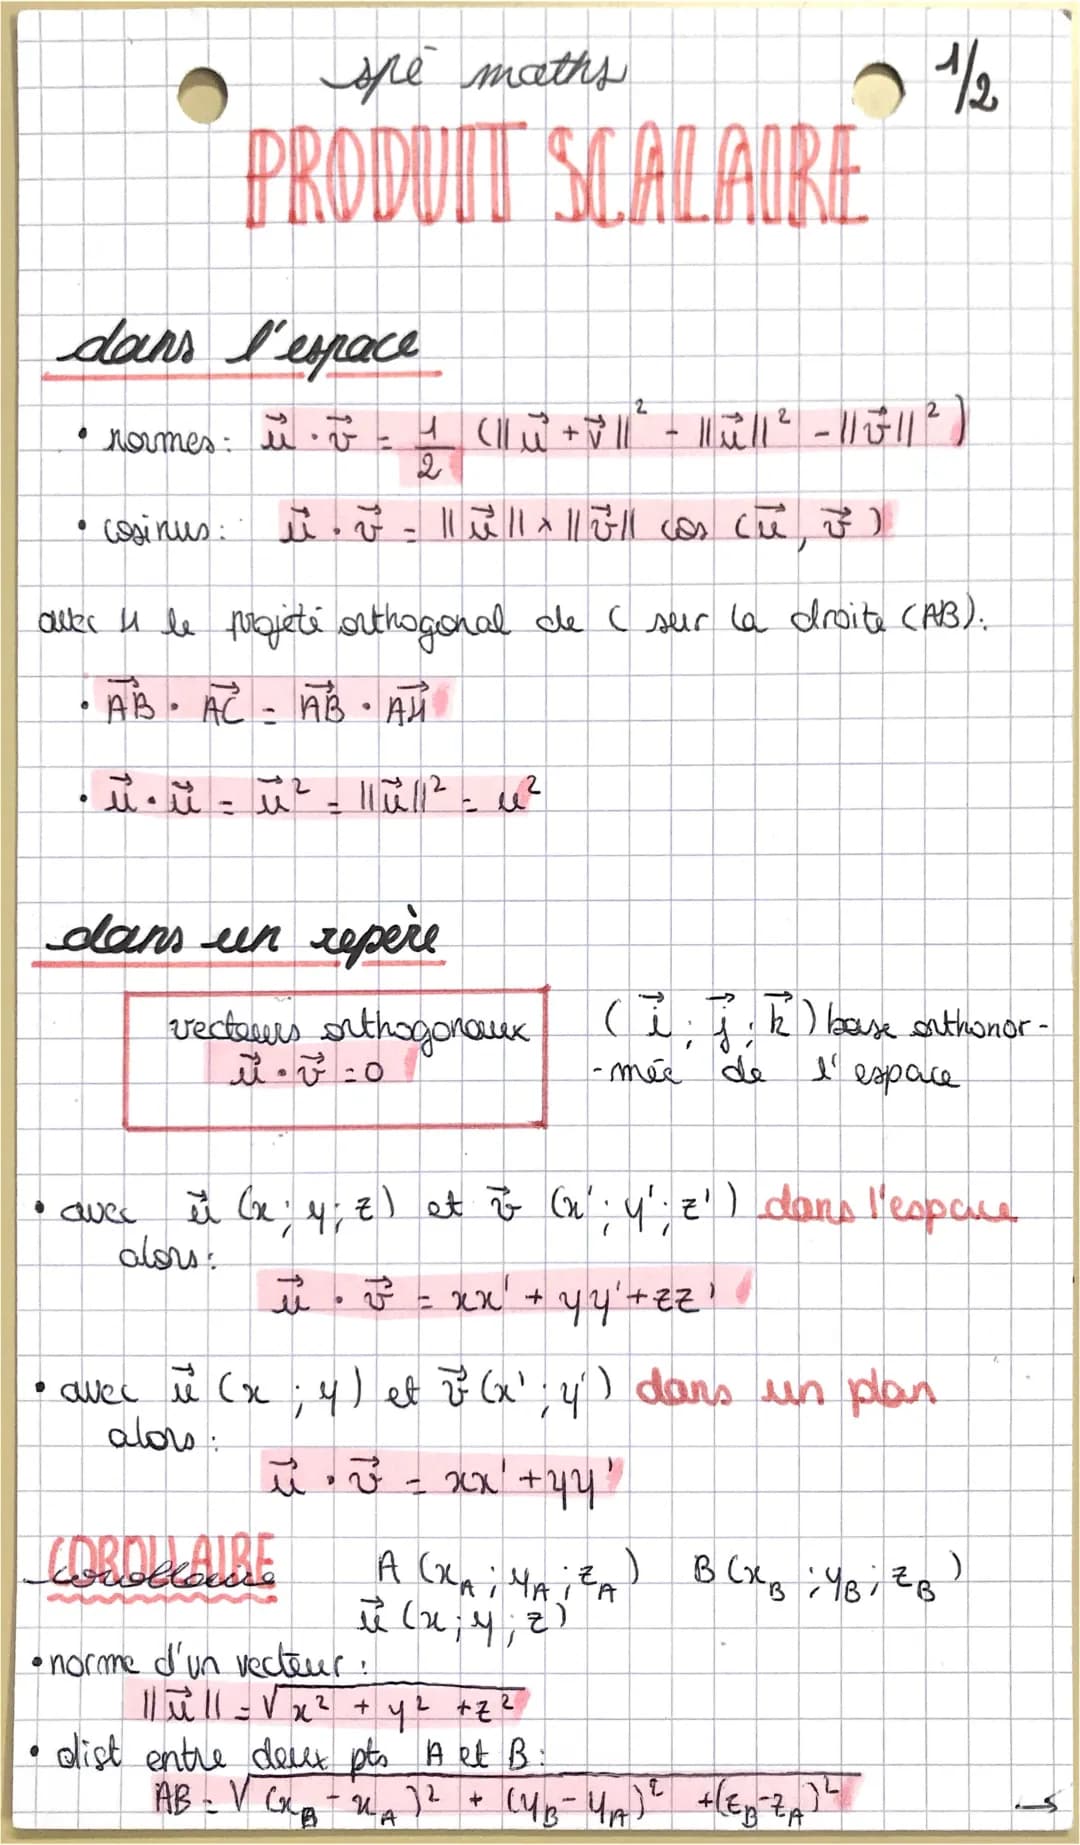 spé maths
1/2
PRODUIT SCALAIRE
dans l'espace
• normes: u⃗ · v⃗ = 1/2 (||u⃗ + v⃗||² - ||u⃗||² - ||v⃗||²)
• cosinus: u⃗ · v⃗ = ||u⃗|| x ||v⃗|| cos (u⃗, v⃗)
avec H le projeté orthogonal de C sur la droite (AB):
• AB⃗ · AC⃗ = AB⃗ · AH⃗
• u⃗ · u⃗ = u⃗² = ||u⃗||² = u²
dans un repère
vecteurs orthogonaux
u⃗ · v⃗ = 0
(i⃗; j⃗; k⃗) base orthonor-
-mée de l'espace
• avec u⃗ (x; y; z) et v⃗ (x'; y'; z') dans l'espace
alors:
u⃗ · v⃗ = xx' + yy' + zz'
• avec u⃗ (x ; y) et v⃗ (x' ; y') dans un plan
alors:
u⃗ · v⃗ = xx' + yy'
COROLLAIRE
corollaire
A (x_A ; y_A ; z_A) B (x_B ; y_B ; z_B)
u⃗ (x ; y ; z)
• norme d'un vecteur:
||u⃗|| = √(x² + y² + z²)
• dist entre deux pts A et B:
AB = √((x_B - x_A)² + (y_B - y_A)² + (z_B - z_A)²)
→